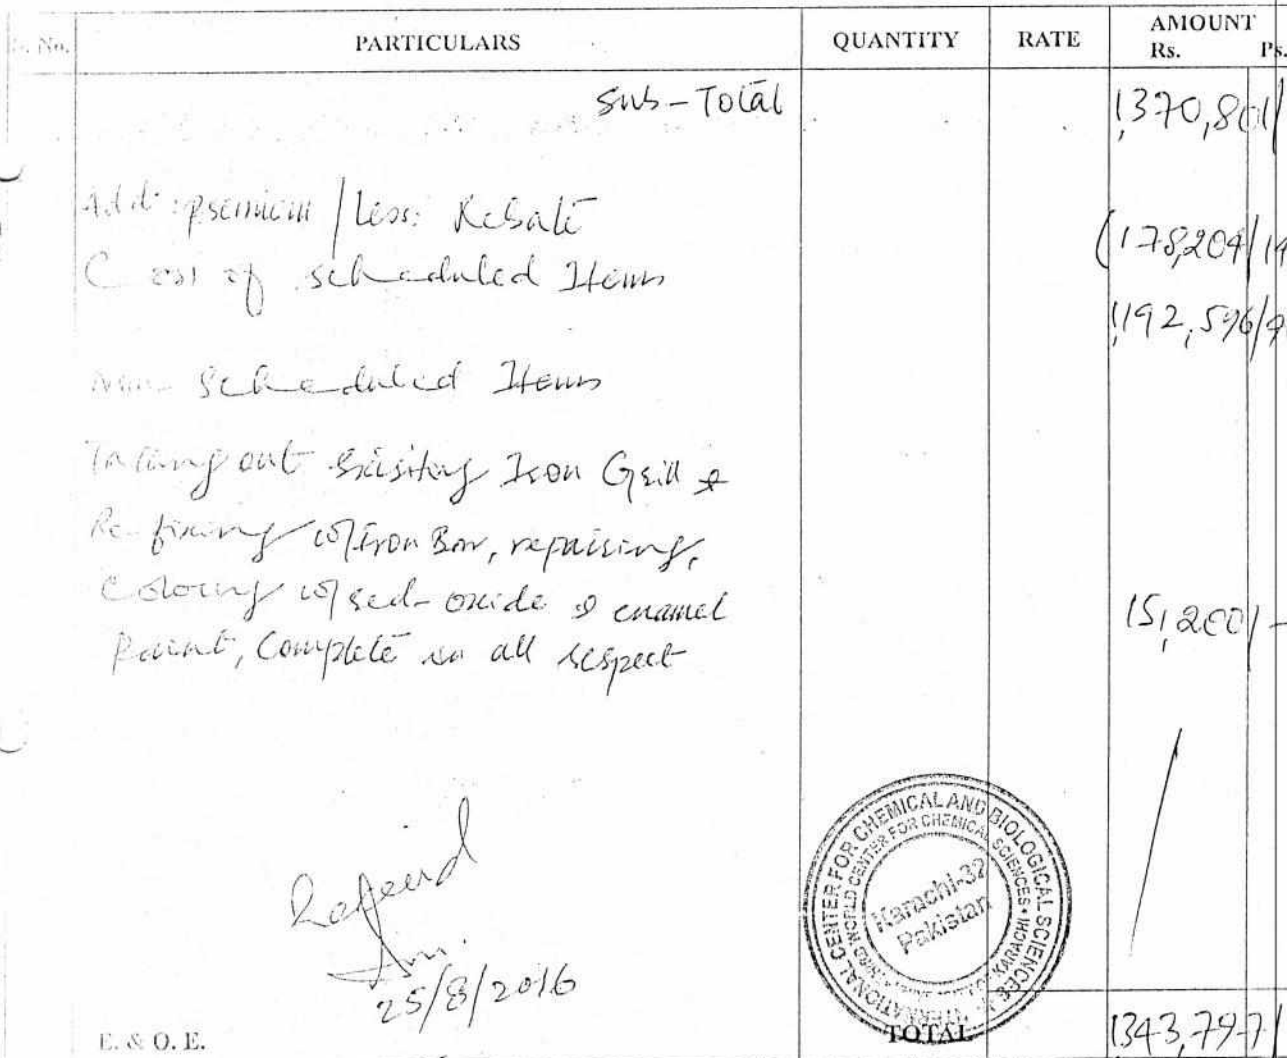 S. No. PARTICULARS QUANTITY RATE AMOUNT
Rs. Ps.
Sub-Total 1,370,801/
Add: premium / Less: Rebate (178,204/14
Cost of scheduled Items 1,192,596/
Non-Scheduled Items
Taking out Existing Iron Grill &
Re-fixing w/ Iron Bar, repairing,
Coloring w/ red-oxide & enamel
Paint, Complete in all respect 15,200/-
25/8/2016
INTERNATIONAL CENTER FOR CHEMICAL AND BIOLOGICAL SCIENCES
THIRD WORLD CENTER FOR CHEMICAL SCIENCES • KARACHI
Karachi-32
Pakistan
E. & O. E. TOTAL 1343,797/